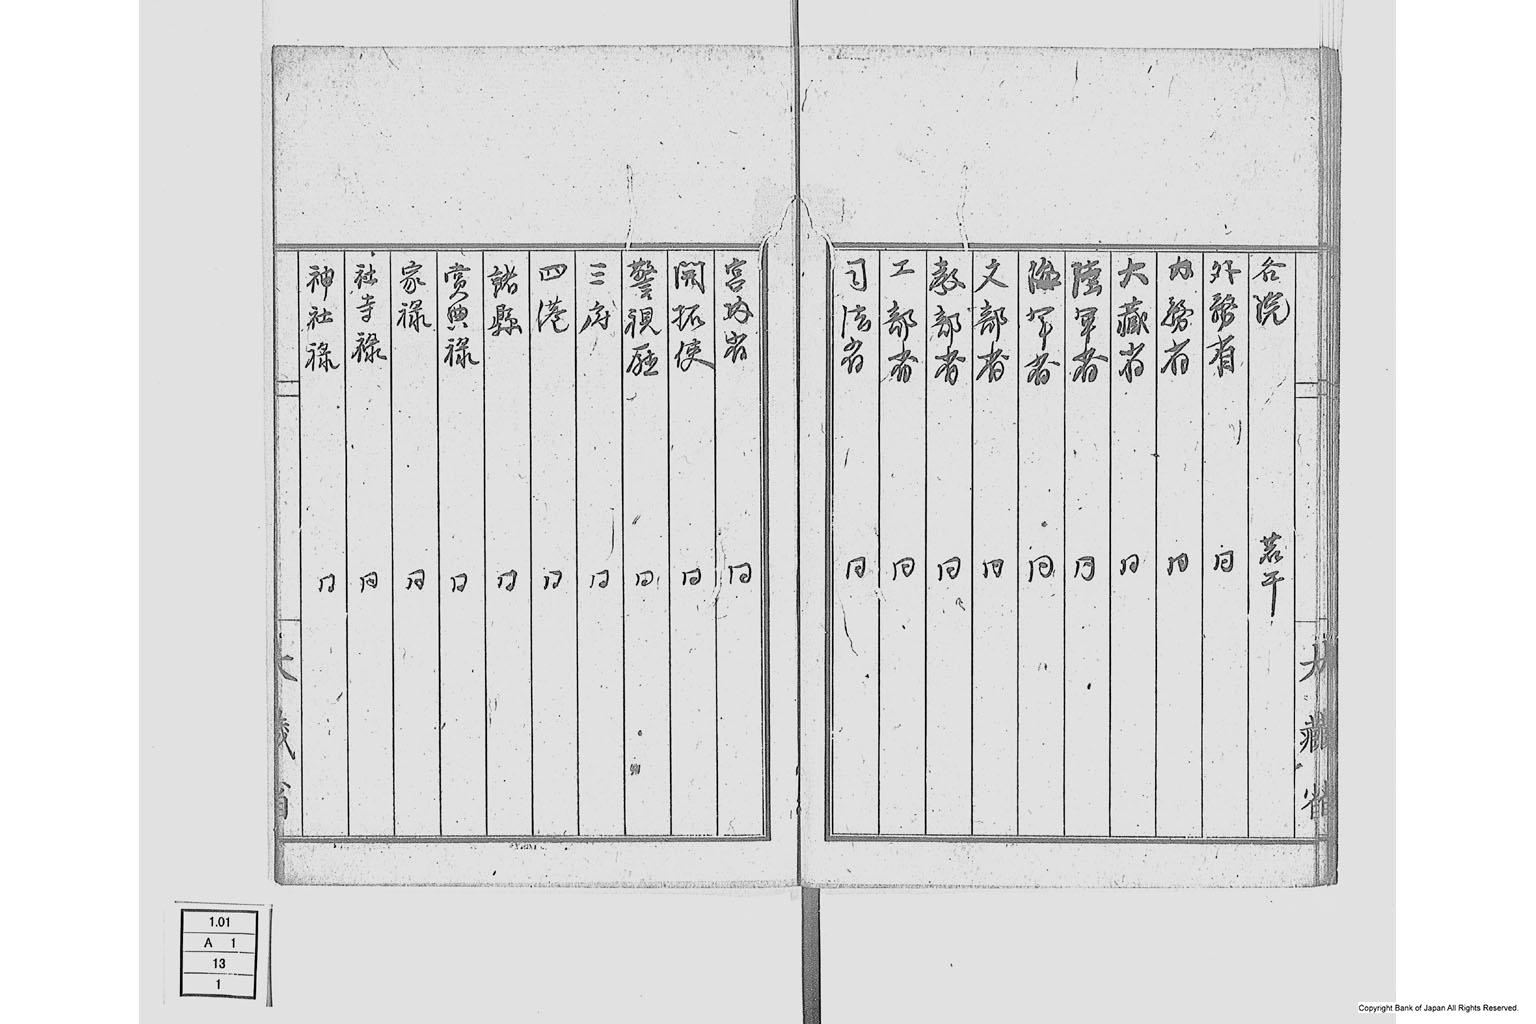 各院 若干
外務省 同
内務省 同
大蔵省 同
陸軍省 同
海軍省 同
文部省 同
教部省 同
工部省 同
司法省 同
宮内省 同
開拓使 同
警視廳 同
三府 同
四港 同
諸縣 同
賞典禄 同
家禄 同
社寺禄 同
神社禄 同
大藏省
大藏省
1.01
A 1
13
1
Copyright Bank of Japan All Rights Reserved.